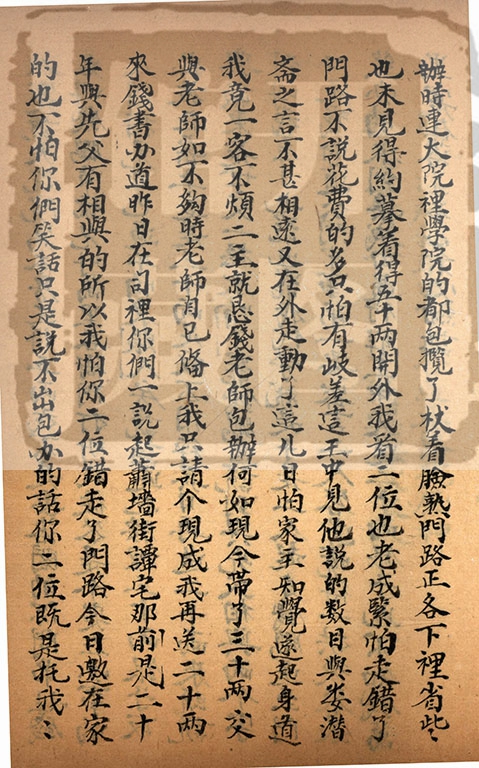 辦時連大院裡學院的都包攬了杖着臉熟門路正各下裡省些〻
也未見得約摹着得五十兩開外我看二位也老成緊怕走錯了
門路不説花費的多只怕有岐差這王中見他説的数目與娄潜
斋之言不甚相遠又在外走動了這几日怕家主知覺遂起身道
我竟一客不煩二主就恳錢老師包辦何如現今帶了三十兩交
與老師如不夠時老師自已俻上我只請个現成我再送二十兩
來錢書办道昨日在司裡你們一説起蕭墻街譚宅那前是二十
年與先父有相與的所以我怕你二位錯走了門路今日邀在家
的也不怕你們笑話只是説不出包办的話你二位既是托我〻